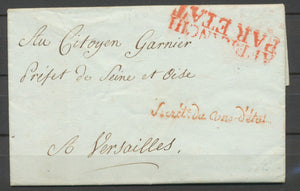 AFFRANCHI
PAR ETAT
Au Citoyen Garnier
Préfet de Seine et Oise
Secrét. du Cons. d'état
A Versailles.